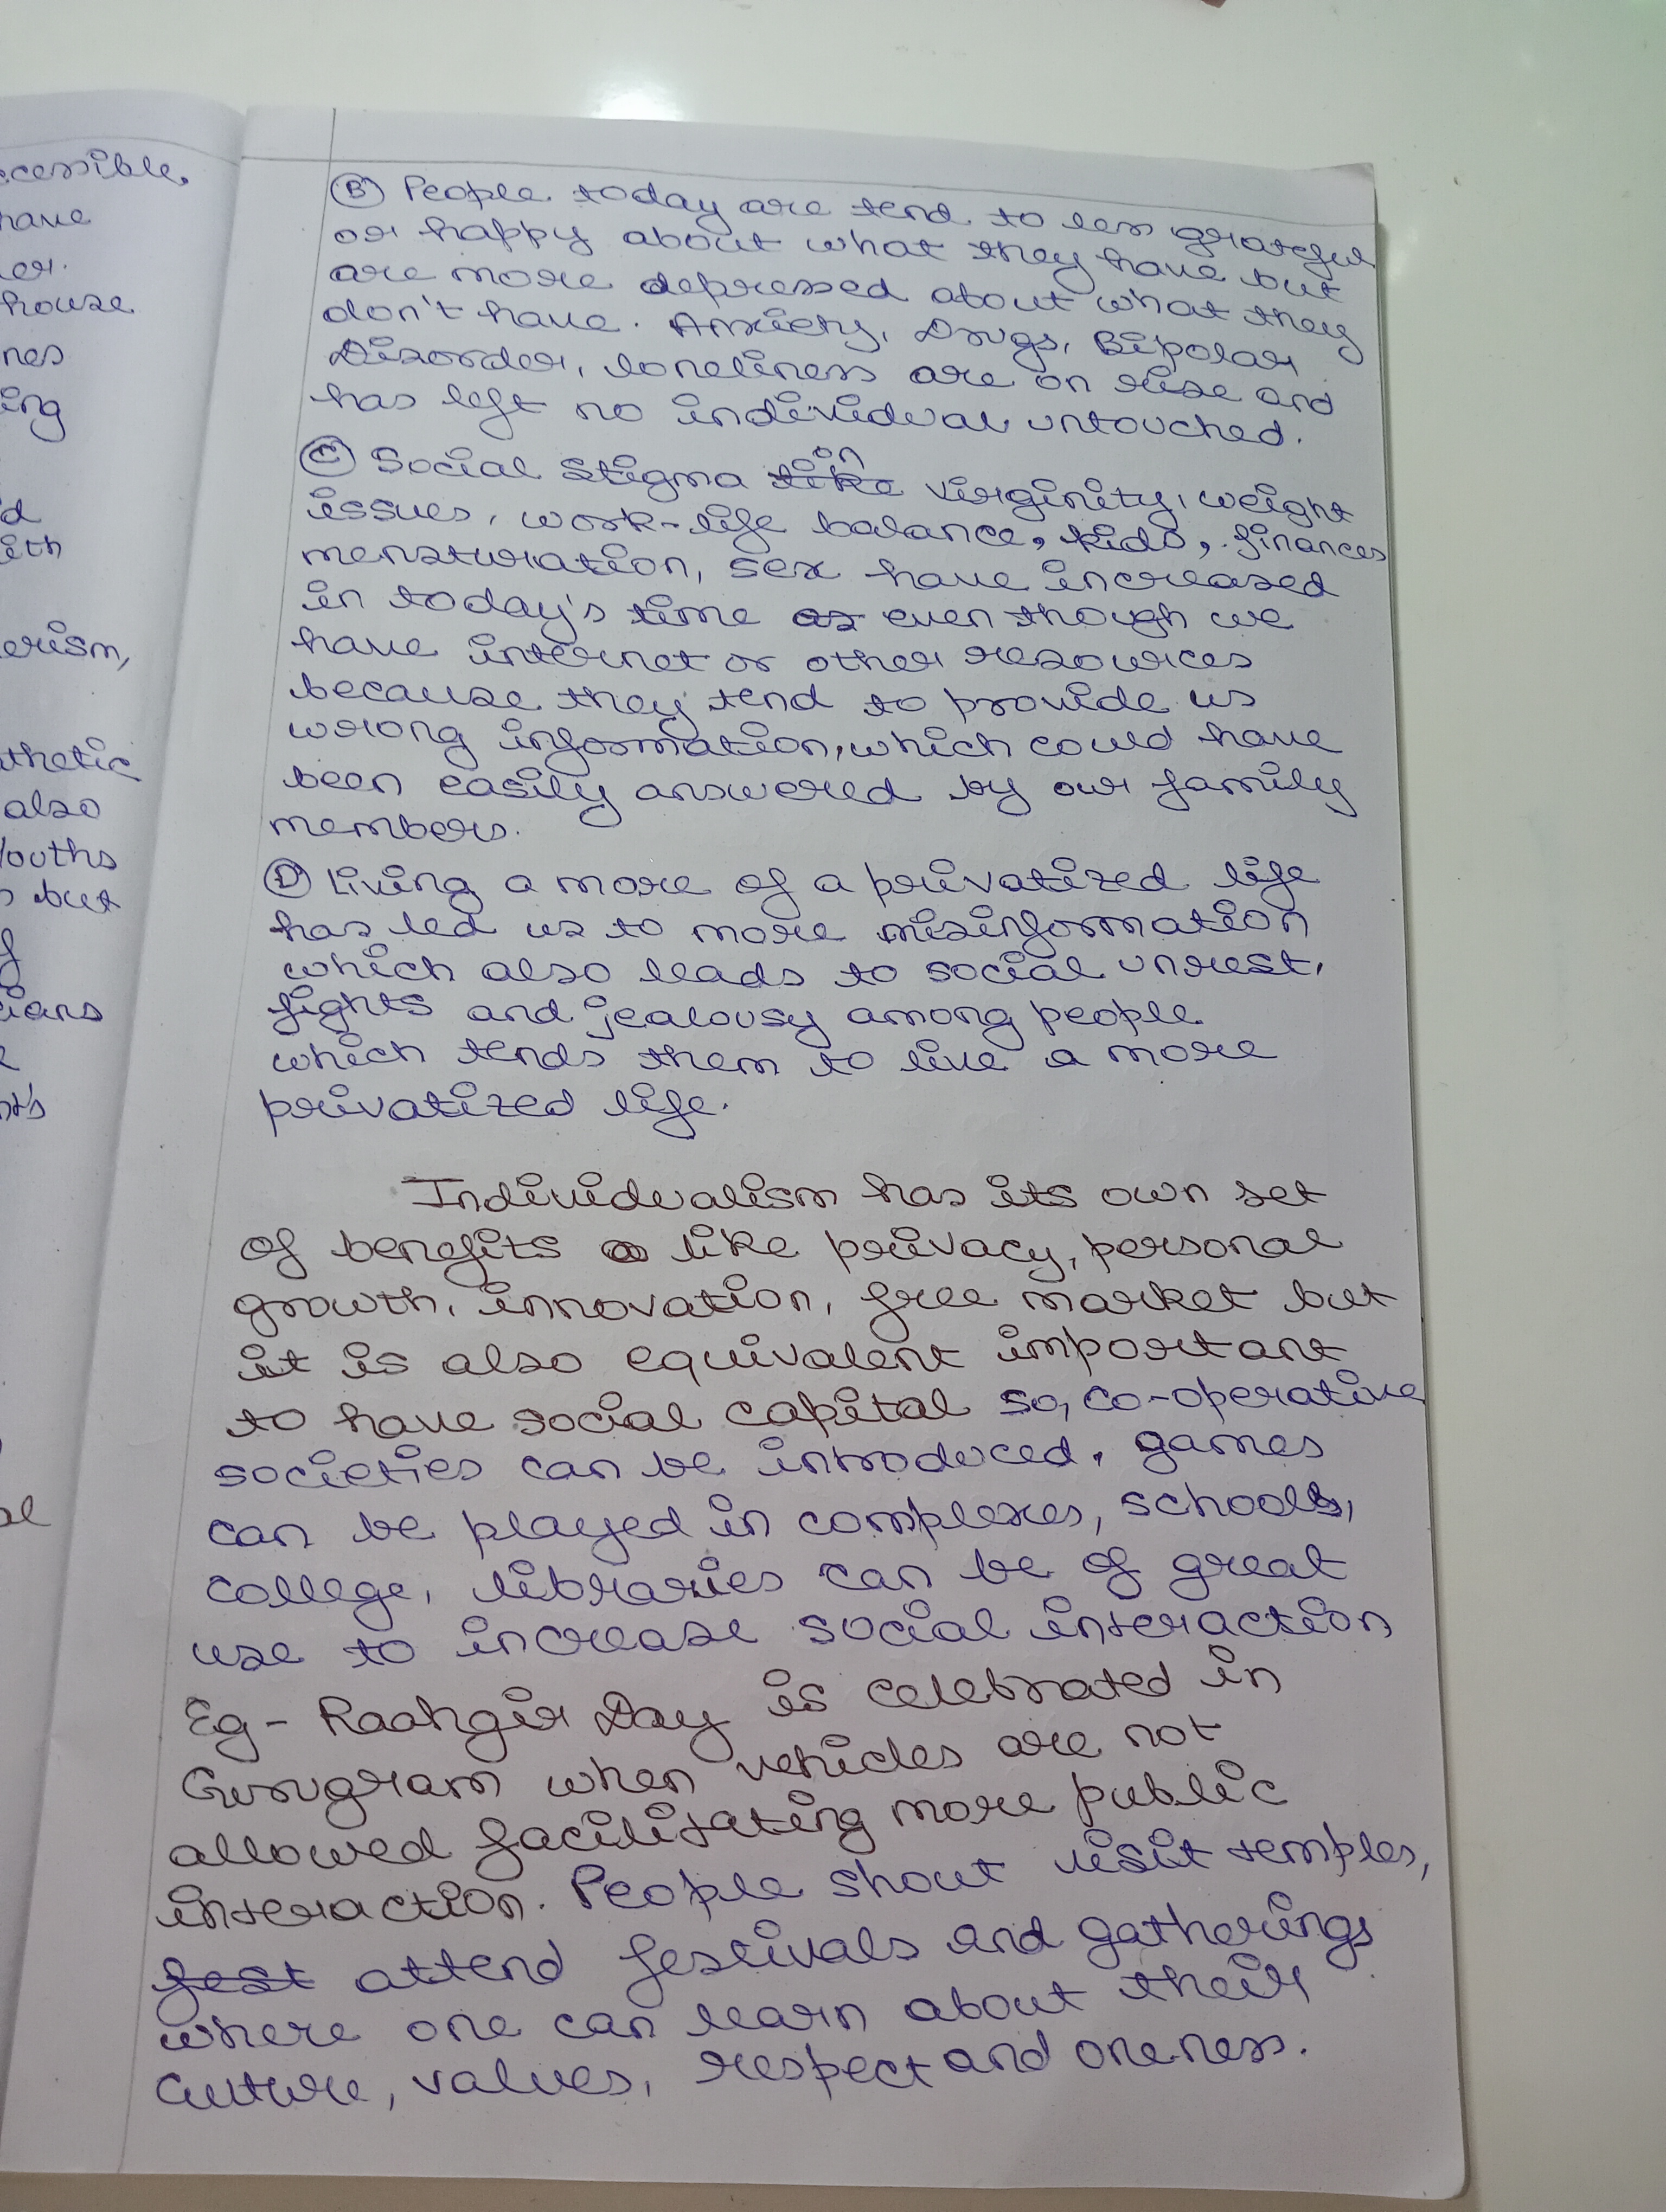 ccessible,
have
er.
house
nes
ing
d
ith
erism,
thetic
also
Youths
but
f
cians
nt's
al
(B) People today are tend to less grateful
or happy about what they have but
are more depressed about what they
don't have. Anxiety, Drugs, Bipolar
Disorder, loneliness are on rise and
has left no individual untouched.
(C) Social Stigma like in virginity, weight
issues, work-life balance, kids, finances
mensturation, sex have increased
in today's time as even though we
have internet or other resources
because they tend to provide us
wrong information, which could have
been easily answered by our family
members.
(D) Living a more of a privatized life
has led us to more misinformation
which also leads to social unrest,
fights and jealousy among people
which tends them to live a more
privatized life.
Individualism has its own set
of benefits like privacy, personal
growth, innovation, free market but
it is also equivalent important
to have social capital so, co-operative
societies can be introduced, games
can be played in complexes, schools,
college, libraries can be of great
use to increase social interaction
Eg - Raahgir Day is celebrated in
Gurugram when vehicles are not
allowed facilitating more public
interaction. People shout visit temples,
fest attend festivals and gatherings
where one can learn about their
Culture, values, respect and oneness.